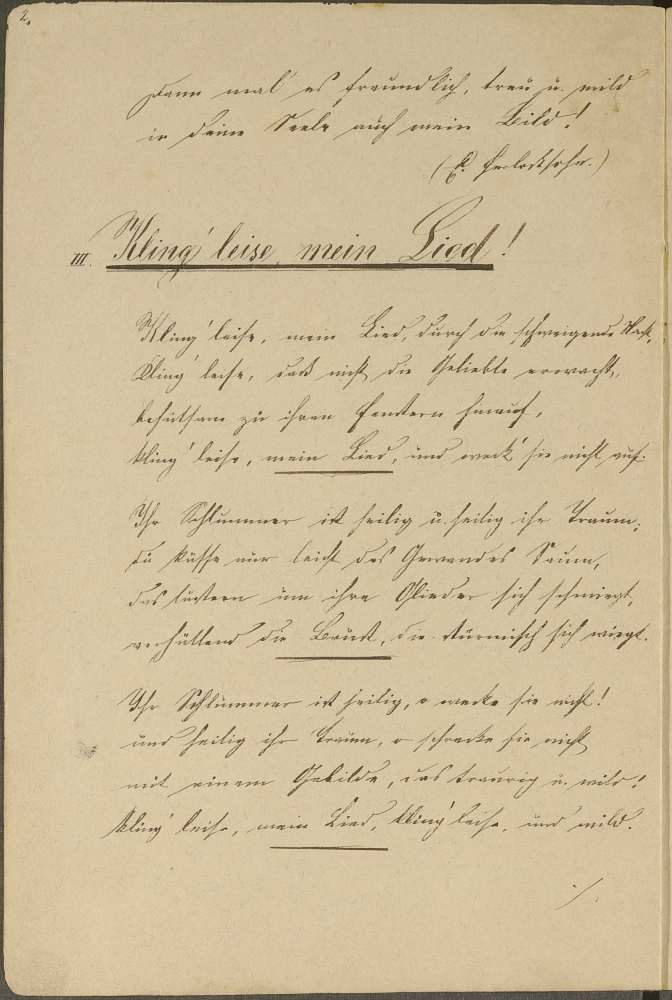 2.
Dann mal' es freundlich, treu u. mild
in deine Seele auch mein Bild!
(C. Herloßsohn.)
III. Kling' leise, mein Lied!
Kling' leise, mein Lied, durch die schweigende Nacht,
Kling' leise, daß nicht die Geliebte erwacht,
behutsam zu ihren Fenstern hinauf,
Kling' leise, mein Lied, und weck' sie nicht auf.
Ihr Schlummer ist heilig u. heilig ihr Traum,
du küsse nur leicht des Gewandes Saum,
das lüstern um ihre Glieder sich schmiegt,
verhüllend die Brust, die stürmisch sich wiegt.
Ihr Schlummer ist heilig, o wecke sie nicht!
und heilig ihr Traum, o schrecke sie nicht
mit einem Gebilde, das traurig u. wild!
Kling' leise, mein Lied, kling' leise, und mild.
./.